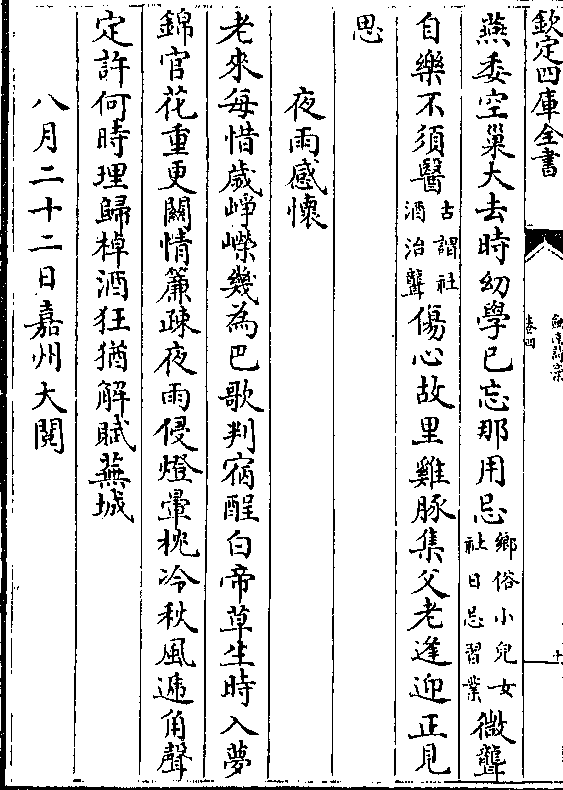 欽定四庫全書
劍南詩稾
卷四
十
燕委空巢大去時幼學已忘那用忌鄉俗小兒女社日忌習業微聾
自樂不須醫古謂社酒治聾傷心故里雞豚集父老逢迎正見
思
夜雨感懷
老來每惜歲崢嶸幾為巴歌判宿酲白帝草生時入夢
錦官花重更關情簾疎夜雨侵燈暈枕冷秋風遞角聲
定許何時理歸棹酒狂猶解賦蕪城
八月二十二日嘉州大閱